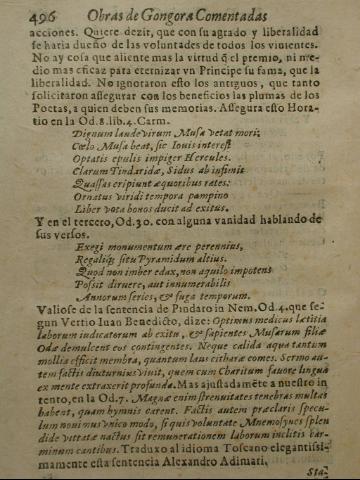 496 Obras de Gongora Comentadas
acciones. Quiere dezir, que con su agrado y liberalidad
se haria dueño de las voluntades de todos los viuientes.
No ay cosa que aliente mas la virtud q̃ el premio, ni me-
dio mas eficaz para eternizar vn Principe su fama, que la
liberalidad. No ignoraron esto los antiguos, que tanto
solicitaron assegurar con los beneficios las plumas de los
Poetas, a quien deben sus memorias. Assegura esto Hora-
tio en la Od.8.lib.4.Carm.
Dignum laude virum Musa vetat mori;
Cœlo Musa beat, sic Iouis interest
Optatis epulis impiger Hercules.
Clarum Tindaridæ, Sidus ab infimis
Quassas eripiunt æquoribus rates:
Ornatus viridi tempora pampino
Liber vota bonos ducit ad exitus,
Y en el tercero, Od.30. con alguna vanidad hablando de
sus versos.
Exegi monumentum ære perennius,
Regaliq; situ Pyramidum altius.
Quod non imber edax, non aquilo impotens
Possit diruere, aut innumerabilis
Annorum series, & fuga temporum.
Valiose de la sentencia de Pindaro in Nem. Od.4. que se-
gun Vertio Iuan Benedicto, dize: Optimus medicus lætitia
laborum iudicatorum ab exitu, & sapientes Musarum filiæ
Odæ demulcent eos contingentes. Neque calida aqua tantum
mollia efficit membra, quantum laus citharæ comes. Sermo au-
tem factis diuturnius viuit, quem cum Charitum fauore lingua
ex mente extraxerit profunda. Mas ajustadamẽte a nuestro in-
tento, en la Od.7. Magnæ enim strenuitates tenebras multas
habent, quam hymnis carent. Factis autem præclaris specu-
lum nouimus vnico modo, si quis voluntate Mnemosynes splen
didæ vittatæ nactus sit remunerationem laborum inclitis car-
minum cantibus. Traduxo al idioma Toscano elegantissi-
mamente esta sentencia Alexandro Adimari.
Sta-